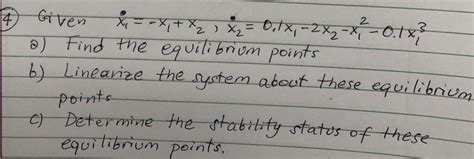 ④ Given ẋ₁ = -x₁ + x₂ , ẋ₂ = 0.1x₁ - 2x₂ - x₁² - 0.1x₁³
a) Find the equilibrium points
b) Linearize the system about these equilibrium
points
c) Determine the stability status of these
equilibrium points.